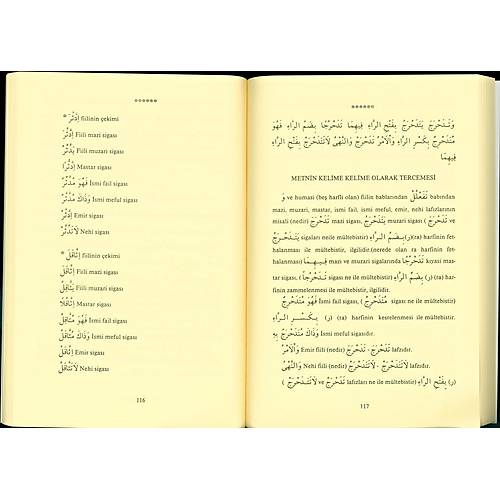 ******
* اِدَّثَرَ fiilinin çekimi
اِدَّثَرَ Fiili mazi sigası
يَدَّثِرُ Fiili muzari sigası
اِدَّثُّرًا Mastar sigası
فَهُوَ مُدَّثِّرٌ İsmi fail sigası
وَذَاكَ مُدَّثَّرٌ İsmi meful sigası
اِدَّثَّرْ Emir sigası
لَا تَدَّثَّرْ Nehi sigası
* اِثَّاقَلَ fiilinin çekimi
اِثَّاقَلَ Fiili mazi sigası
يَثَّاقَلُ Fiili muzari sigası
اِثَّاقُلًا Mastar sigası
فَهُوَ مُثَّاقِلٌ İsmi fail sigası
وَذَاكَ مُثَّاقَلٌ İsmi meful sigası
اِثَّاقَلْ Emir sigası
لَا تَثَّاقَلْ Nehi sigası
116
******
وَتَدَحْرَجَ يَتَدَحْرَجُ بِفَتْحِ الرَّاءِ فِيهِمَا تَدَحْرُجًا بِضَمِّ الرَّاءِ فَهُوَ
مُتَدَحْرِجٌ بِكَسْرِ الرَّاءِ وَالْاَمْرُ تَدَحْرَجْ وَالنَّهْىُ لَاتَتَدَحْرَجْ بِفَتْحِ الرَّاءِ
فِيهِمَا
METNİN KELİME KELİME OLARAK TERCEMESİ
وَ ve humasi (beş harfli olan) fiilin bablarından تَفَعْلُلْ babından
mazi, muzari, mastar, ismi fail, ismi meful, emir, nehi lafızlarının
misali (nedir) تَدَحْرَجَ mazi sigası, يَتَدَحْرَجُ muzari sigası ( تَدَحْرَجَ ve
يَتَدَحْرَجُ sigaları ne ile mültebistir) بِفَتْحِ الرَّاءِ (ر) (ra) harfinin fet-
halanması ile mültebistir, ilgilidir.(nerede olan ra harfinin fet-
halanması) فِيهِمَا mazi ve muzari sigalarında تَدَحْرُجًا kıyasi mas-
tar sigası, ( تَدَحْرُجًا sigası ne ile mültebistir) بِضَمِّ الرَّاءِ (ر) (ra) har-
finin zammelenmesi ile mültebistir, ilgilidir.
فَهُوَ مُتَدَحْرِجٌ İsmi fail sigası, ( مُتَدَحْرِجٌ sigası ne ile mültebistir)
بِكَسْرِ الرَّاءِ (ر) (ra) harfinin kesrelenmesi ile mültebistir.
وَذَاكَ مُتَدَحْرَجٌ بِهِ İsmi meful sigasıdır.
وَالْاَمْرُ Emir fiili (nedir) تَدَحْرَجْ - تَدَحْرَجْ lafzıdır.
وَالنَّهْىُ Nehi fiili (nedir) لَاتَتَدَحْرَجْ - لَاتَتَدَحْرَجْ lafzıdır.
( تَدَحْرَجْ ve لَاتَتَدَحْرَجْ lafızları ne ile mültebistir) بِفَتْحِ الرَّاءِ (ر)
117